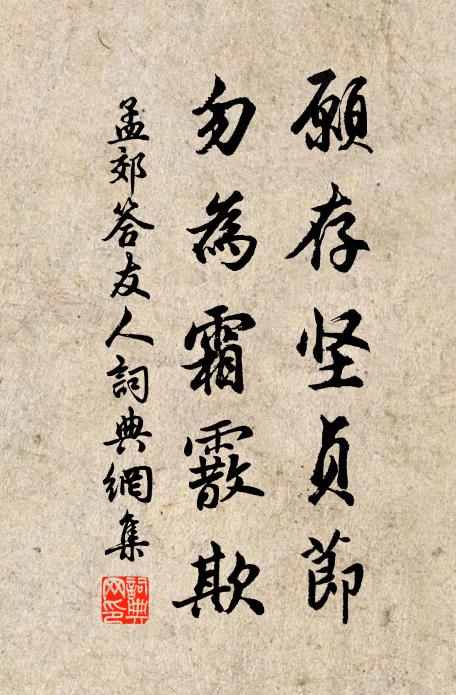 願存坚貞節
勿為霜霰欺
孟郊答友人詞典網集
詞典网印